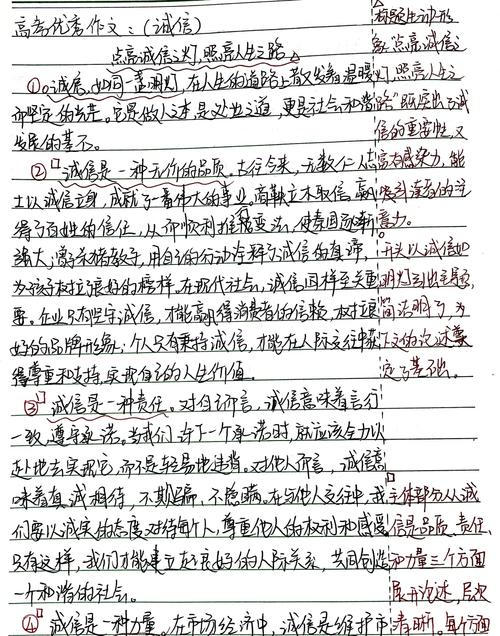 高考优秀作文：（诚信）
点亮诚信之灯，照亮人生之路
①诚信，如同一盏明灯，在人生的道路上散发着温暖
而坚定的光芒。它是做人之本，是处世之道，更是社会和谐
发展的基石。
②诚信是一种无价的品质。古往今来，无数仁人志
士以诚信立身，成就了一番伟大的事业。商鞅立木取信，赢
得了百姓的信任，从而顺利推行变法，使秦国逐渐
强大；曾子杀猪教子，用自己的行动诠释了诚信的真谛，
为孩子树立了良好的榜样。在现代社会，诚信同样至关重
要。企业只有坚守诚信，才能赢得消费者的信赖，树立良
好的品牌形象；个人只有秉持诚信，才能在人际交往中获
得尊重和支持，实现自己的人生价值。
③诚信是一种责任。对自己而言，诚信意味着言行
一致，遵守承诺。当我们许下一个承诺时，就应该全力以
赴地去实现它，而不是轻易地违背。对他人而言，诚信意
味着真诚相待，不欺骗，不隐瞒。在与他人交往中，我
们要以诚实的态度对待每个人，尊重他人的权利和感受
只有这样，我们才能建立起良好的人际关系，共同创造
一个和谐的社会。
④诚信是一种力量。在市场经济中，诚信是维护市
标题生动形
象，点亮诚信之
灯，照亮人生之
路"既突出了诚
信的重要性，又
富有感染力，能
吸引读者的注
意力。
开头以诚信如
明灯引出主题，
简洁明了，为
下文的论述奠
定了基础。
主体部分从诚
信是品质、责任、
和力量三个方面
展开论述，层次
清晰。每个方面